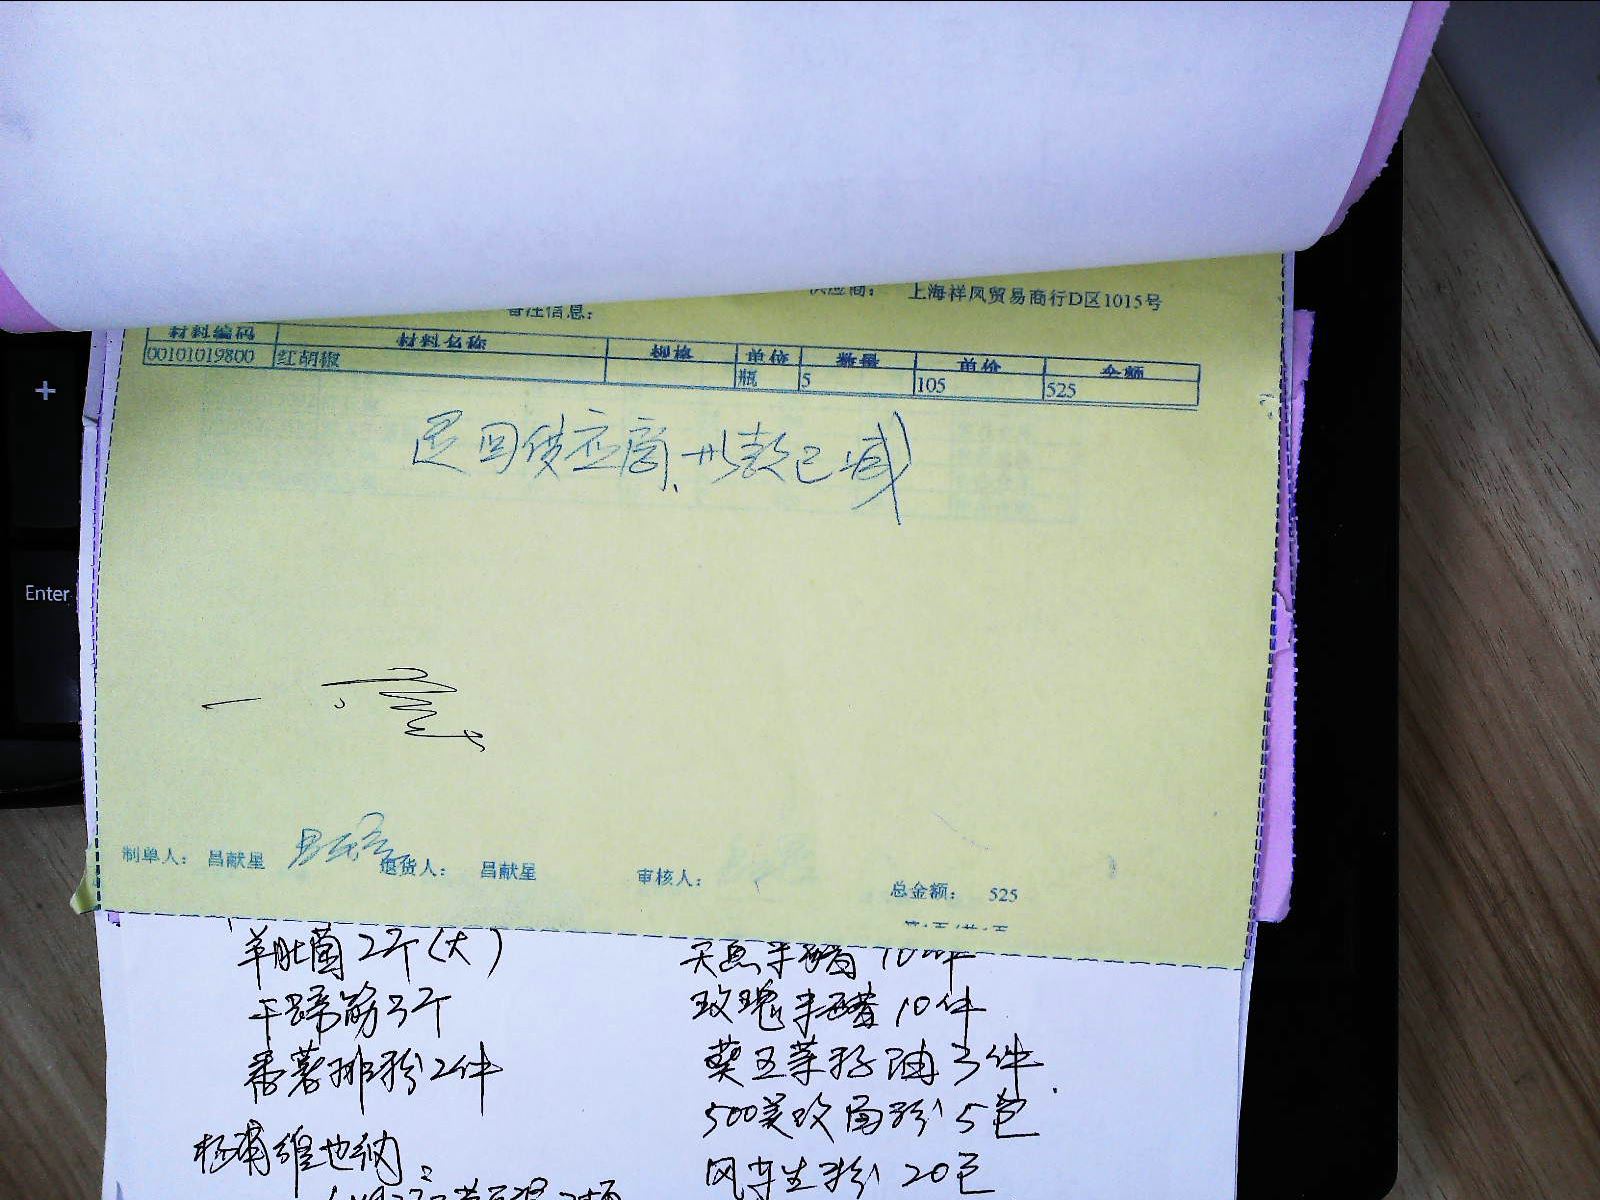 供应商： 上海祥凤贸易商行D区1015号
备注信息：
材料编码 材料名称 规格 单位 数量 单价 金额
00101019800 红胡椒 瓶 5 105 525
退回供应商、此款已减
制单人： 昌献星 退货人： 昌献星 审核人： 总金额： 525
第1页/共1页
+
Enter
羊肚菌2个(大)
干蹄筋3个
番薯排粉2件
杨浦维也纳
玫瑰米醋10件
葵王菜籽油3件
500美玫面粉5包
风车生粉20包